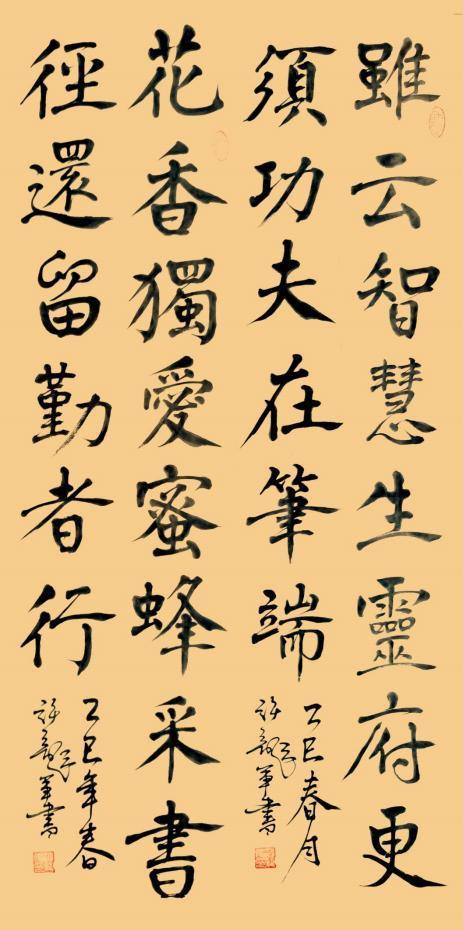 雖云智慧生靈府更
須功夫在筆端
乙巳春月
許軍書
花香獨愛蜜蜂采書
徑還留勤者行
乙巳年春
許軍書